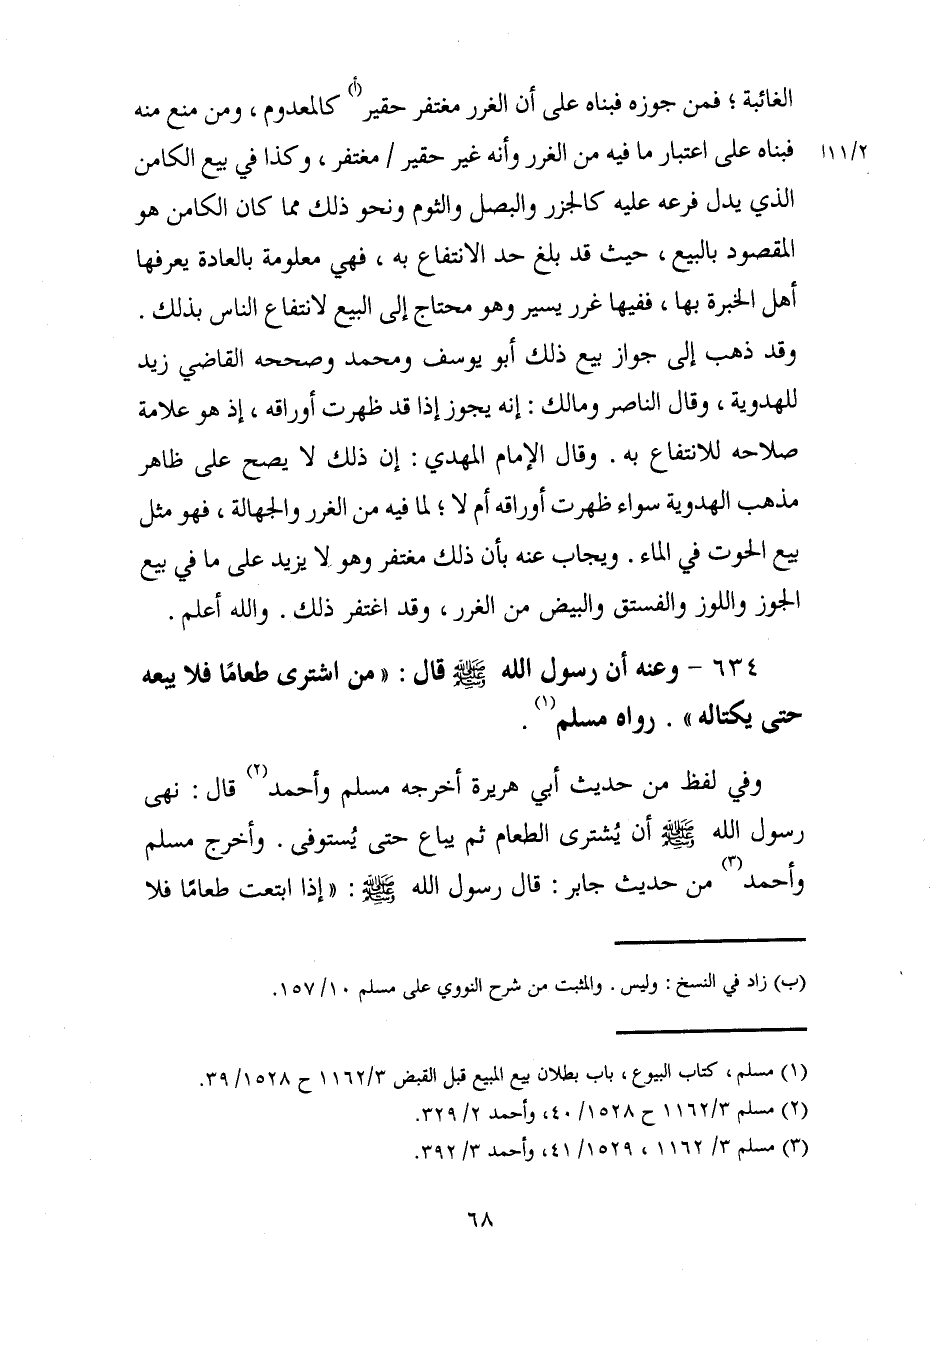 الغائبة ؛ فمن جوزه فبناه على أن الغرر مغتفر حقير(أ) كالمعدوم ، ومن منع منه
فبناه على اعتبار ما فيه من الغرر وأنه غير حقير / مغتفر ، وكذا في بيع الكامن ١١١/٢
الذي يدل فرعه عليه كالجزر والبصل والثوم ونحو ذلك مما كان الكامن هو
المقصود بالبيع ، حيث قد بلغ حد الانتفاع به ، فهي معلومة بالعادة يعرفها
أهل الخبرة بها ، ففيها غرر يسير وهو محتاج إلى البيع لانتفاع الناس بذلك .
وقد ذهب إلى جواز بيع ذلك أبو يوسف ومحمد وصححه القاضي زيد
للهدوية ، وقال الناصر ومالك : إنه يجوز إذا قد ظهرت أوراقه ، إذ هو علامة
صلاحه للانتفاع به . وقال الإمام المهدي : إن ذلك لا يصح على ظاهر
مذهب الهدوية سواء ظهرت أوراقه أم لا ؛ لما فيه من الغرر والجهالة ، فهو مثل
بيع الحوت في الماء . ويجاب عنه بأن ذلك مغتفر وهو لا يزيد على ما في بيع
الجوز واللوز والفستق والبيض من الغرر ، وقد اغتفر ذلك . والله أعلم .
٦٣٤ - وعنه أن رسول الله ﷺ قال : « من اشترى طعامًا فلا يبعه
حتى يكتاله » . رواه مسلم(١) .
وفي لفظ من حديث أبي هريرة أخرجه مسلم وأحمد(٢) قال : نهى
رسول الله ﷺ أن يُشترى الطعام ثم يباع حتى يُستوفى . وأخرج مسلم
وأحمد(٣) من حديث جابر : قال رسول الله ﷺ : « إذا ابتعت طعامًا فلا
(ب) زاد في النسخ : وليس . والمثبت من شرح النووي على مسلم ١٥٧/١٠.
(١) مسلم ، كتاب البيوع ، باب بطلان بيع المبيع قبل القبض ١١٦٢/٣ ح ٣٩/١٥٢٨.
(٢) مسلم ١١٦٢/٣ ح ٤٠/١٥٢٨، وأحمد ٣٢٩/٢.
(٣) مسلم ١١٦٢/٣ ، ٤١/١٥٢٩، وأحمد ٣٩٢/٣.
٦٨